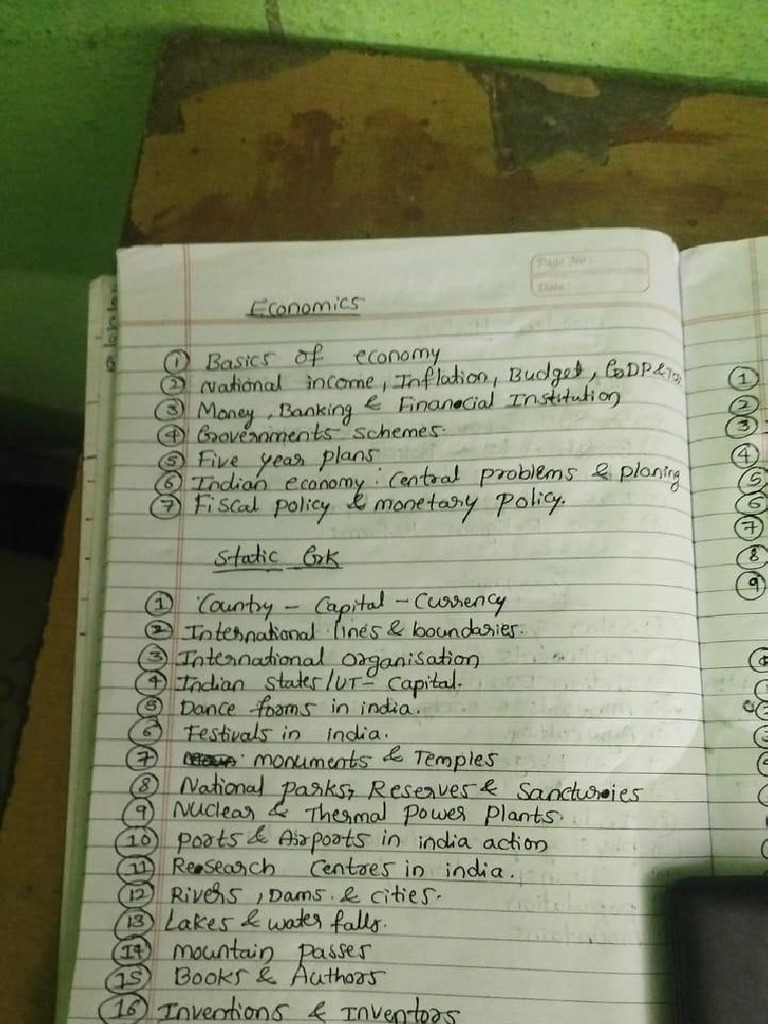 Page No:
Date:
Economics
① Basics of economy
② National income, Inflation, Budget, GDP &
③ Money, Banking & Financial Institution
④ Governments schemes.
⑤ Five year plans
⑥ Indian economy: Central problems & planing
⑦ Fiscal policy & monetary policy.
Static GK
① Country - Capital - Currency
② International lines & boundaries.
③ International organisation
④ Indian states/UT - Capital.
⑤ Dance forms in india.
⑥ Festivals in india.
⑦ : monuments & Temples
⑧ National parks, Reserves & Sancturies
⑨ Nuclear & Thermal Power Plants.
⑩ Ports & Airports in india action
⑪ Research Centres in india.
⑫ Rivers, Dams. & cities.
⑬ Lakes & water falls.
⑭ mountain passes
⑮ Books & Authors
⑯ Inventions & Inventors
①
②
③
④
⑤
⑥
⑦
⑧
⑨